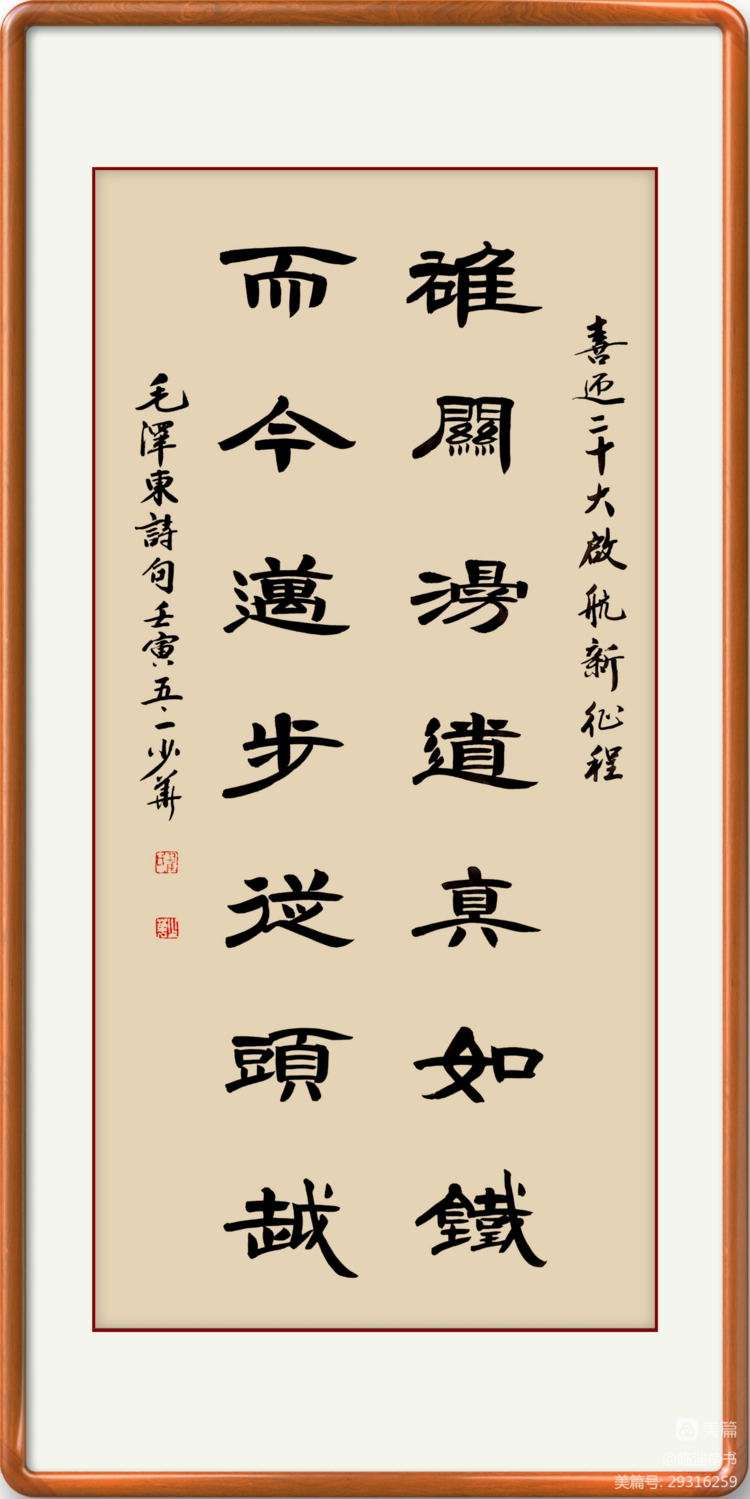 喜迎二十大啟航新征程
雄關漫道真如鐵
而今邁步從頭越
毛澤東詩句壬寅五·一少華
美篇
美篇号: 29316259